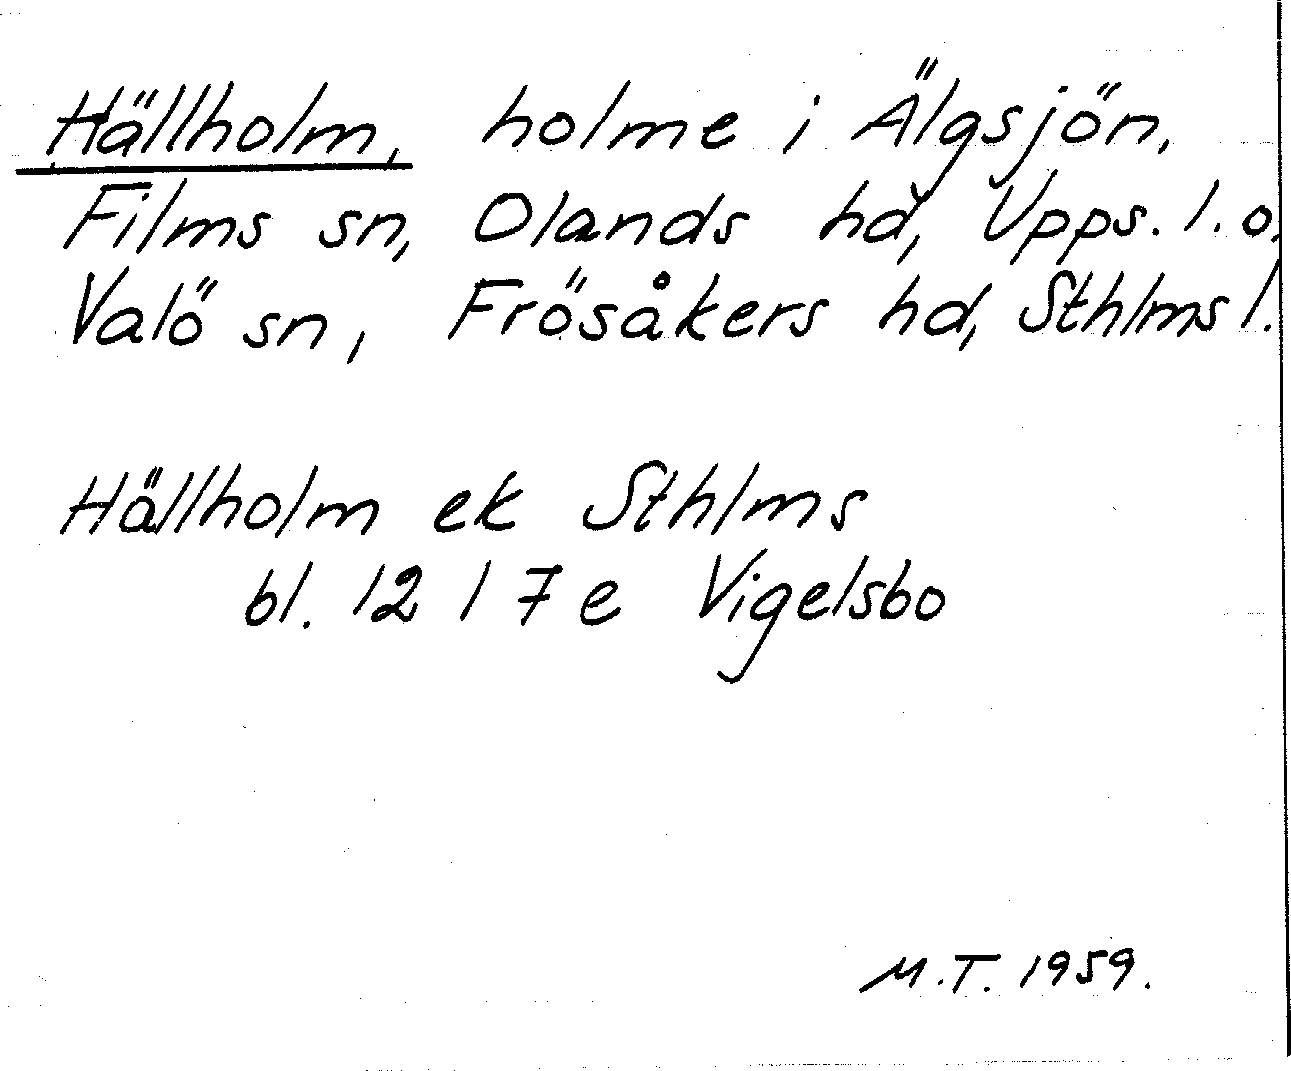 Hällholm, holme i Älgsjön,
Films sn, Olands hd, Upps. l. o.
Valö sn, Frösåkers hd, Sthlms l.
Hällholm ek Sthlms
bl. 12 I 7 e Vigelsbo
M.T. 1959.